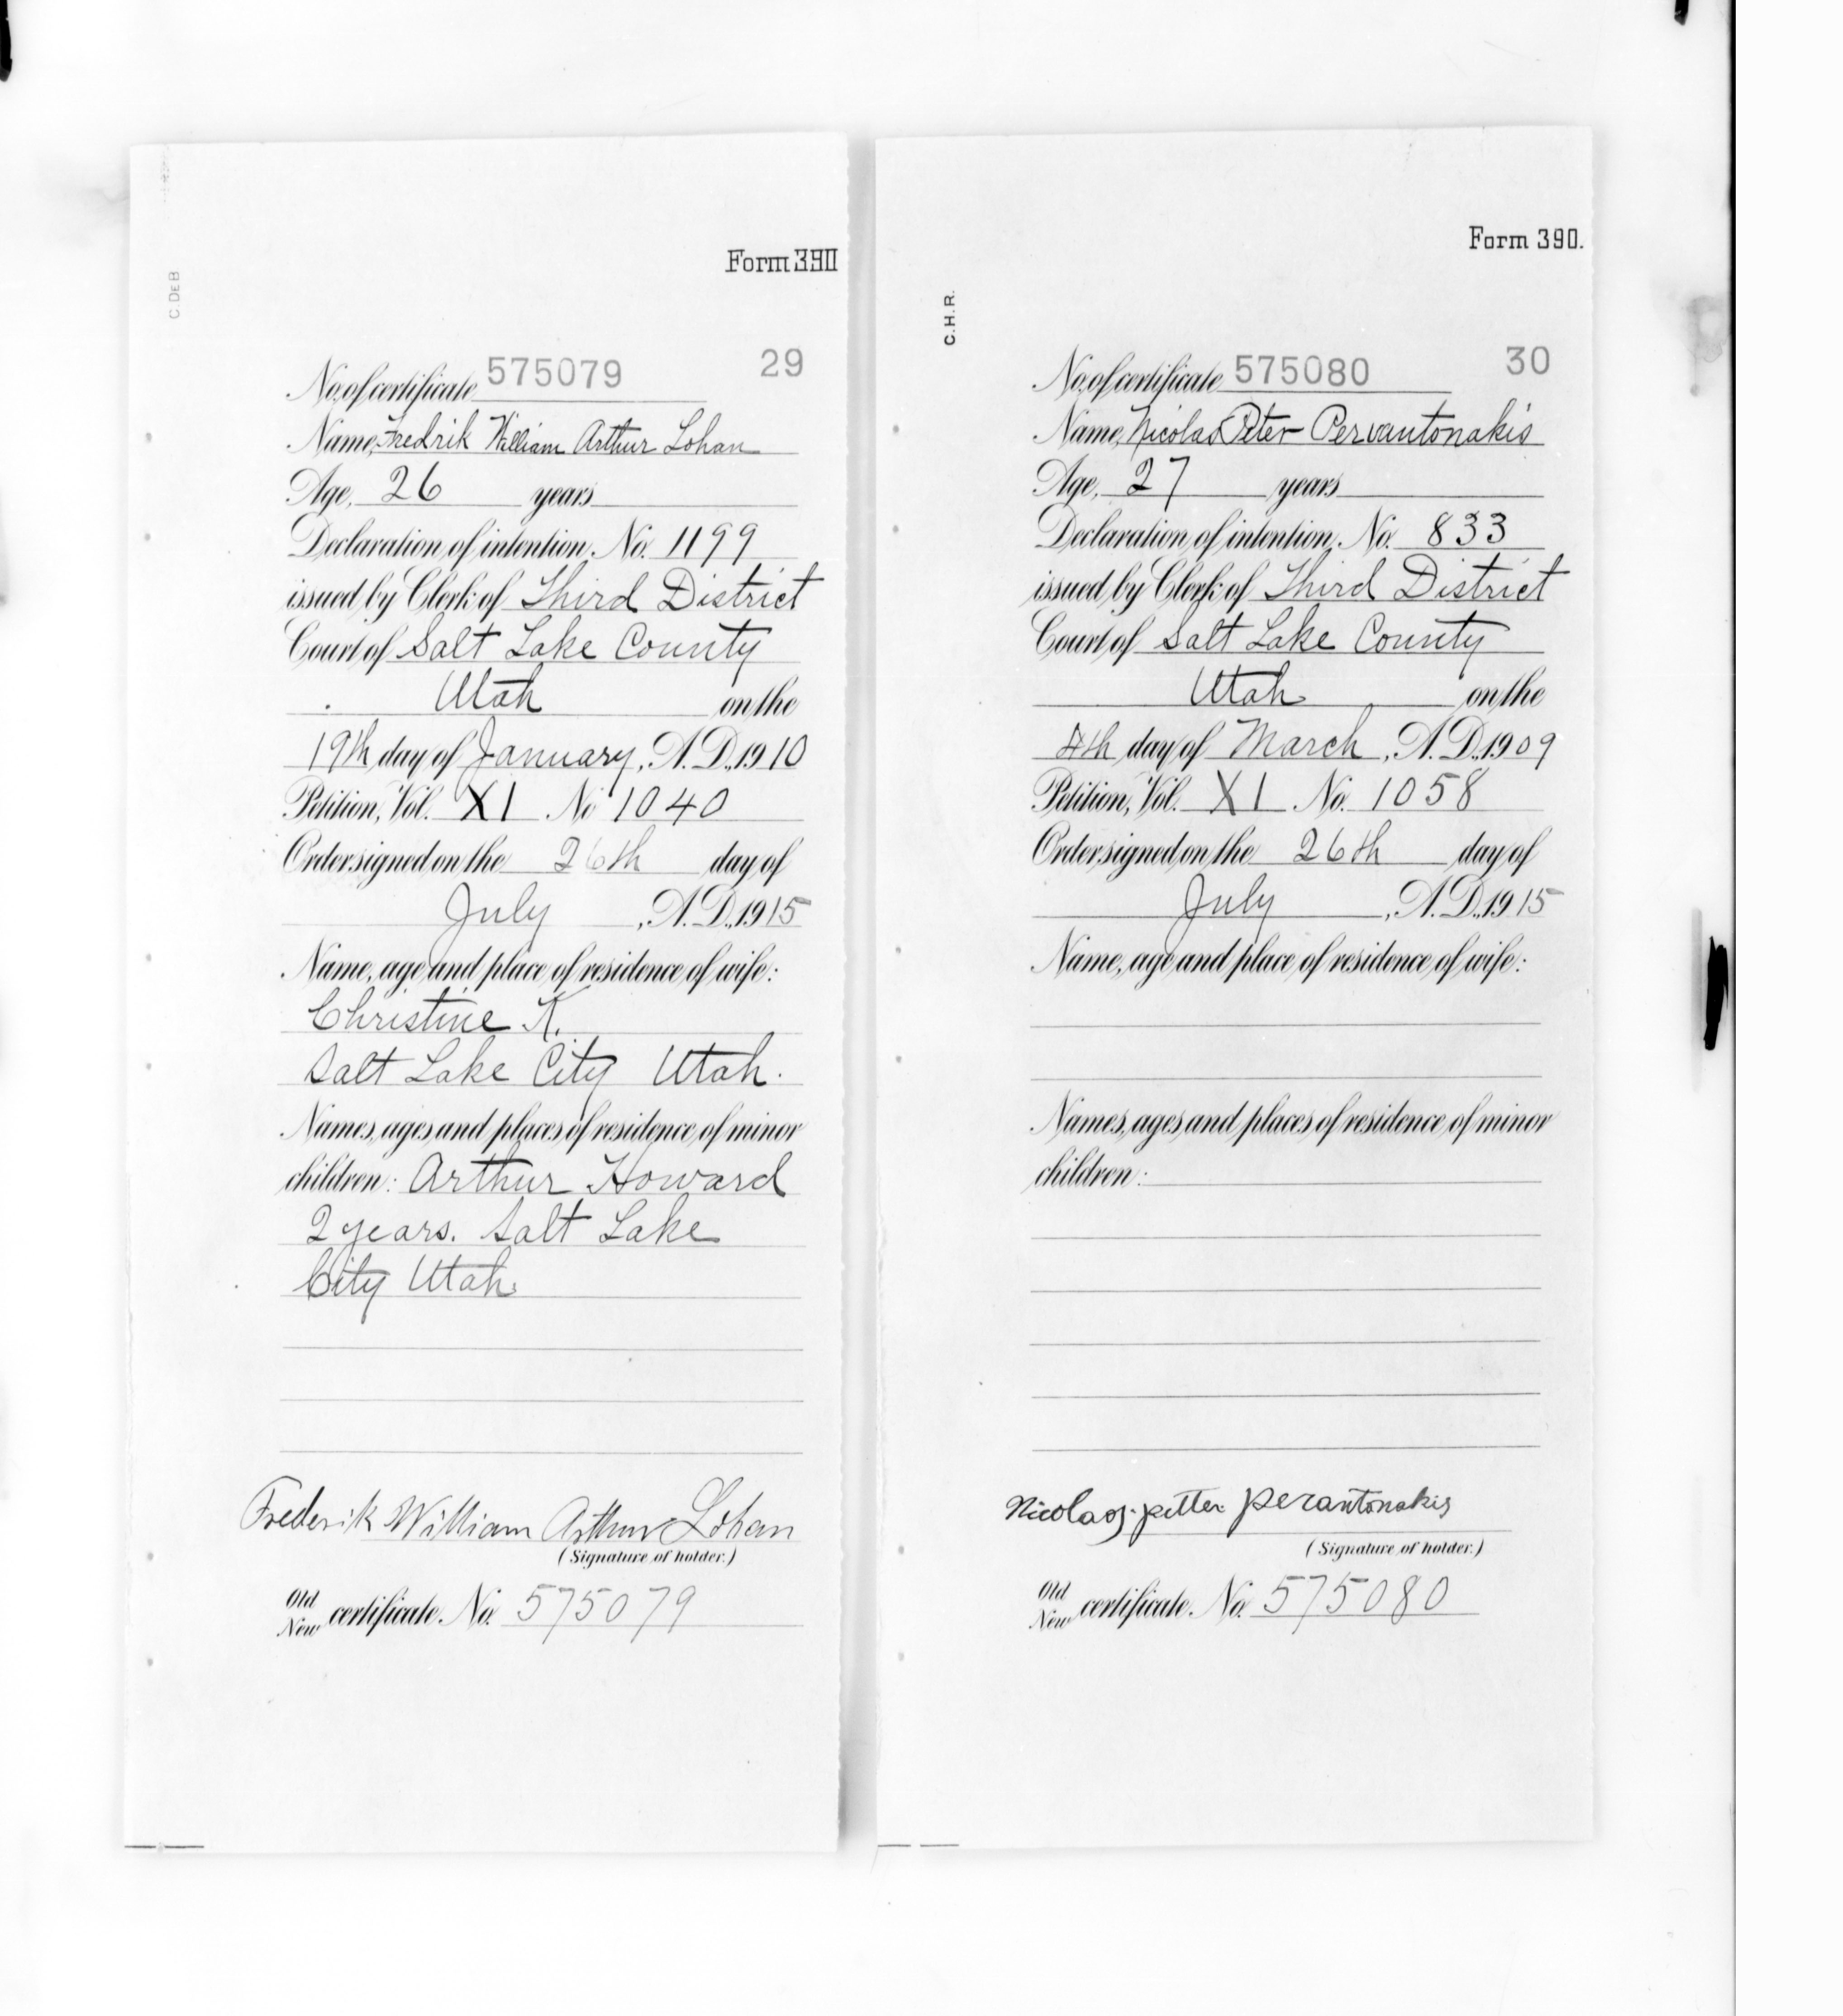 Form 390
C. DE B
No. of certificate 575079 29
Name, Fredrik William Arthur Lohan
Age, 26 years
Declaration of intention, No. 1199
issued by Clerk of Third District
Court of Salt Lake County
Utah on the
19th day of January, A. D., 1910
Petition, Vol. XI No 1040
Order signed on the 26th day of
July, A. D., 1915
Name, age and place of residence of wife:
Christine K.
Salt Lake City Utah.
Names, ages and places of residence of minor
children: Arthur Howard
2 years. Salt Lake
City Utah
Frederik William Arthur Lohan
(Signature of holder.)
Old
New certificate No. 575079
Form 390.
C.H.R.
No. of certificate 575080 30
Name, Nicolas Peter Pervantonakis
Age, 27 years
Declaration of intention, No. 833
issued by Clerk of Third District
Court of Salt Lake County
Utah on the
4th day of March, A. D., 1909
Petition, Vol. XI No. 1058
Order signed on the 26th day of
July, A. D., 1915
Name, age and place of residence of wife:
Names, ages and places of residence of minor
children:
Nicolaos. pitter perantonakis
(Signature of holder.)
Old
New certificate No. 575080